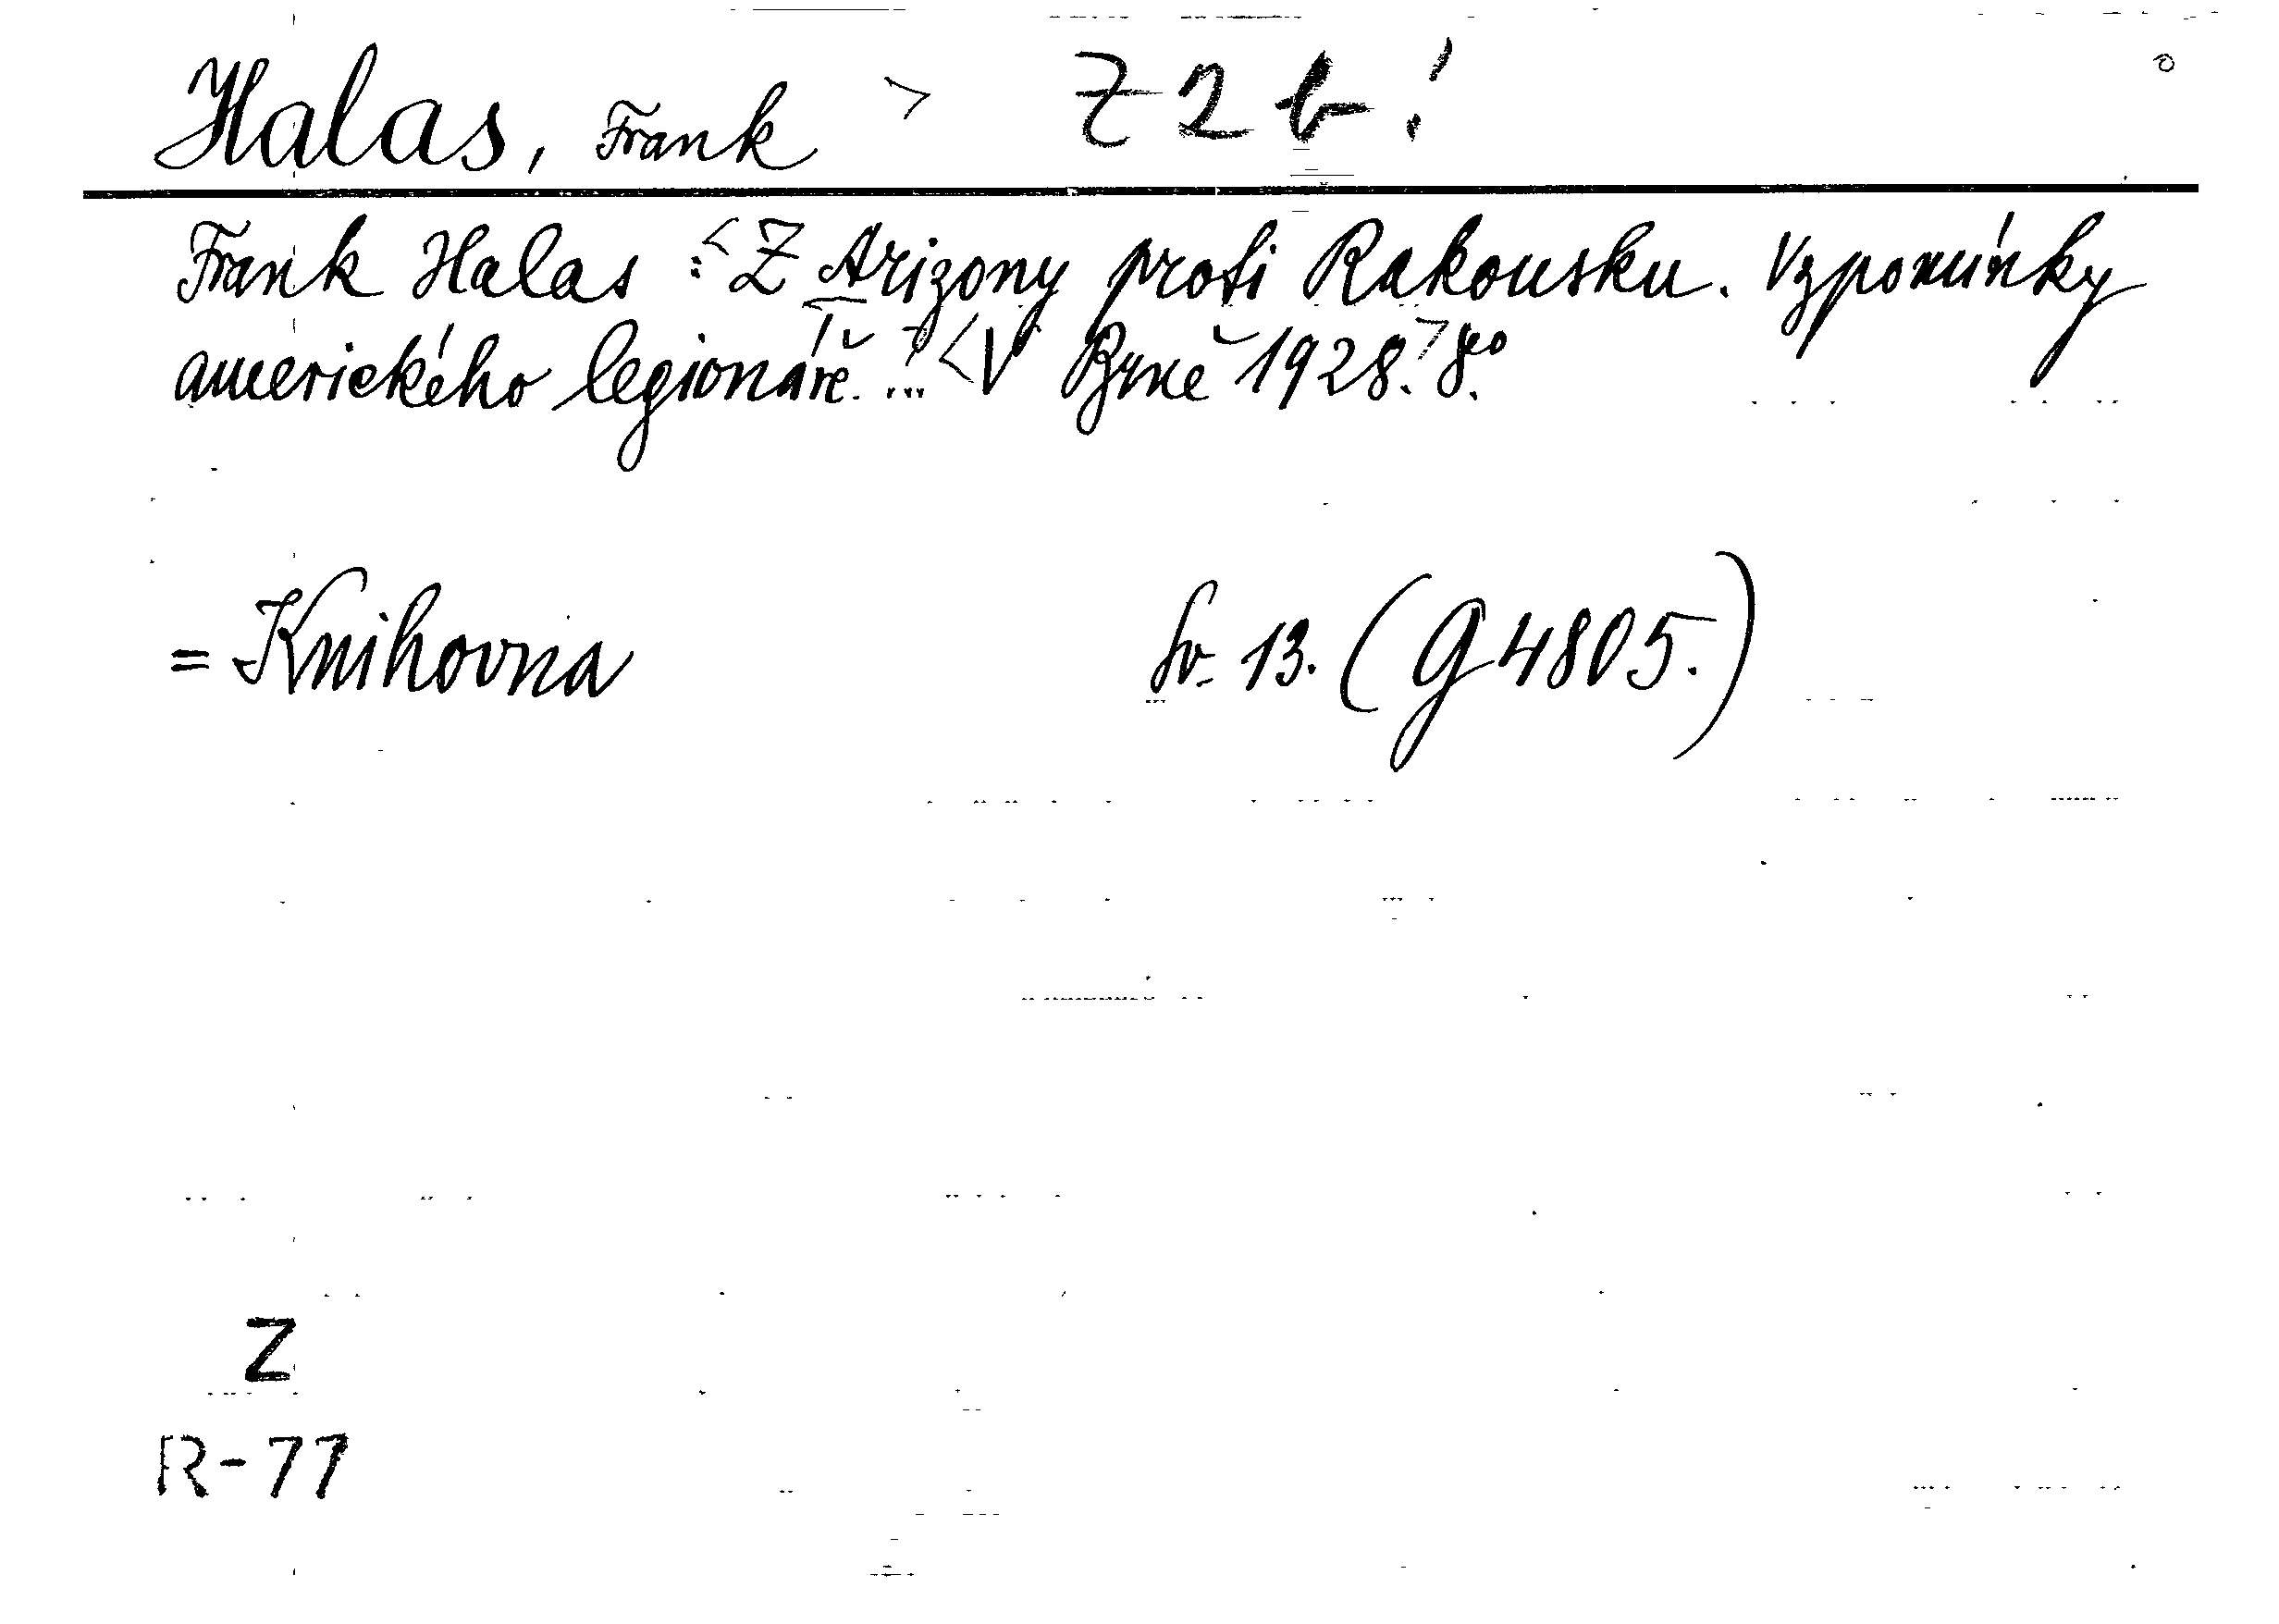 Halas, Frank > Z 2 b!
Frank Halas : <Z Arizony proti Rakousku. Vzpomínky
amerického legionáře. ...! <V Brně 1928.> 8°.
= Knihovna Sv. 13. (G 4805.)
Z
R-77